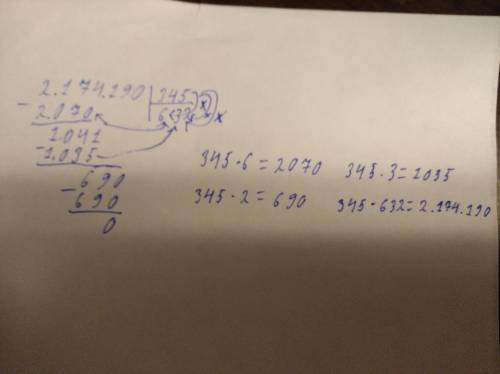 2.174.190 | 345
- 2.070 6302
1041
- 1.035
690
- 690
0
345 · 6 = 2070 345 · 3 = 1035
345 · 2 = 690 345 · 632 = 2.174.190